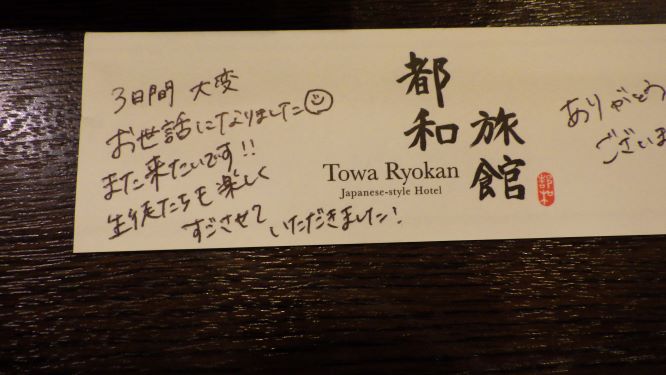 3日間 大変
お世話になりました
また来たいです!!
生徒たちも楽しく
すごさせて
いただきました!
都和
旅館
Towa Ryokan
Japanese-style Hotel
都和
ありがとう
ございま